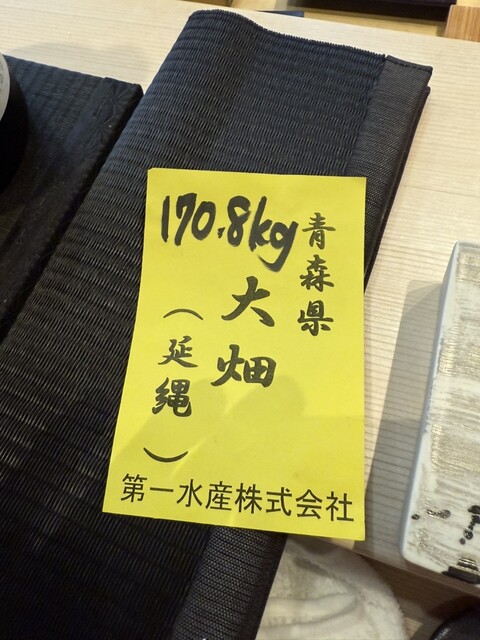 170.8kg
青森県
大畑
（延縄）
第一水産株式会社